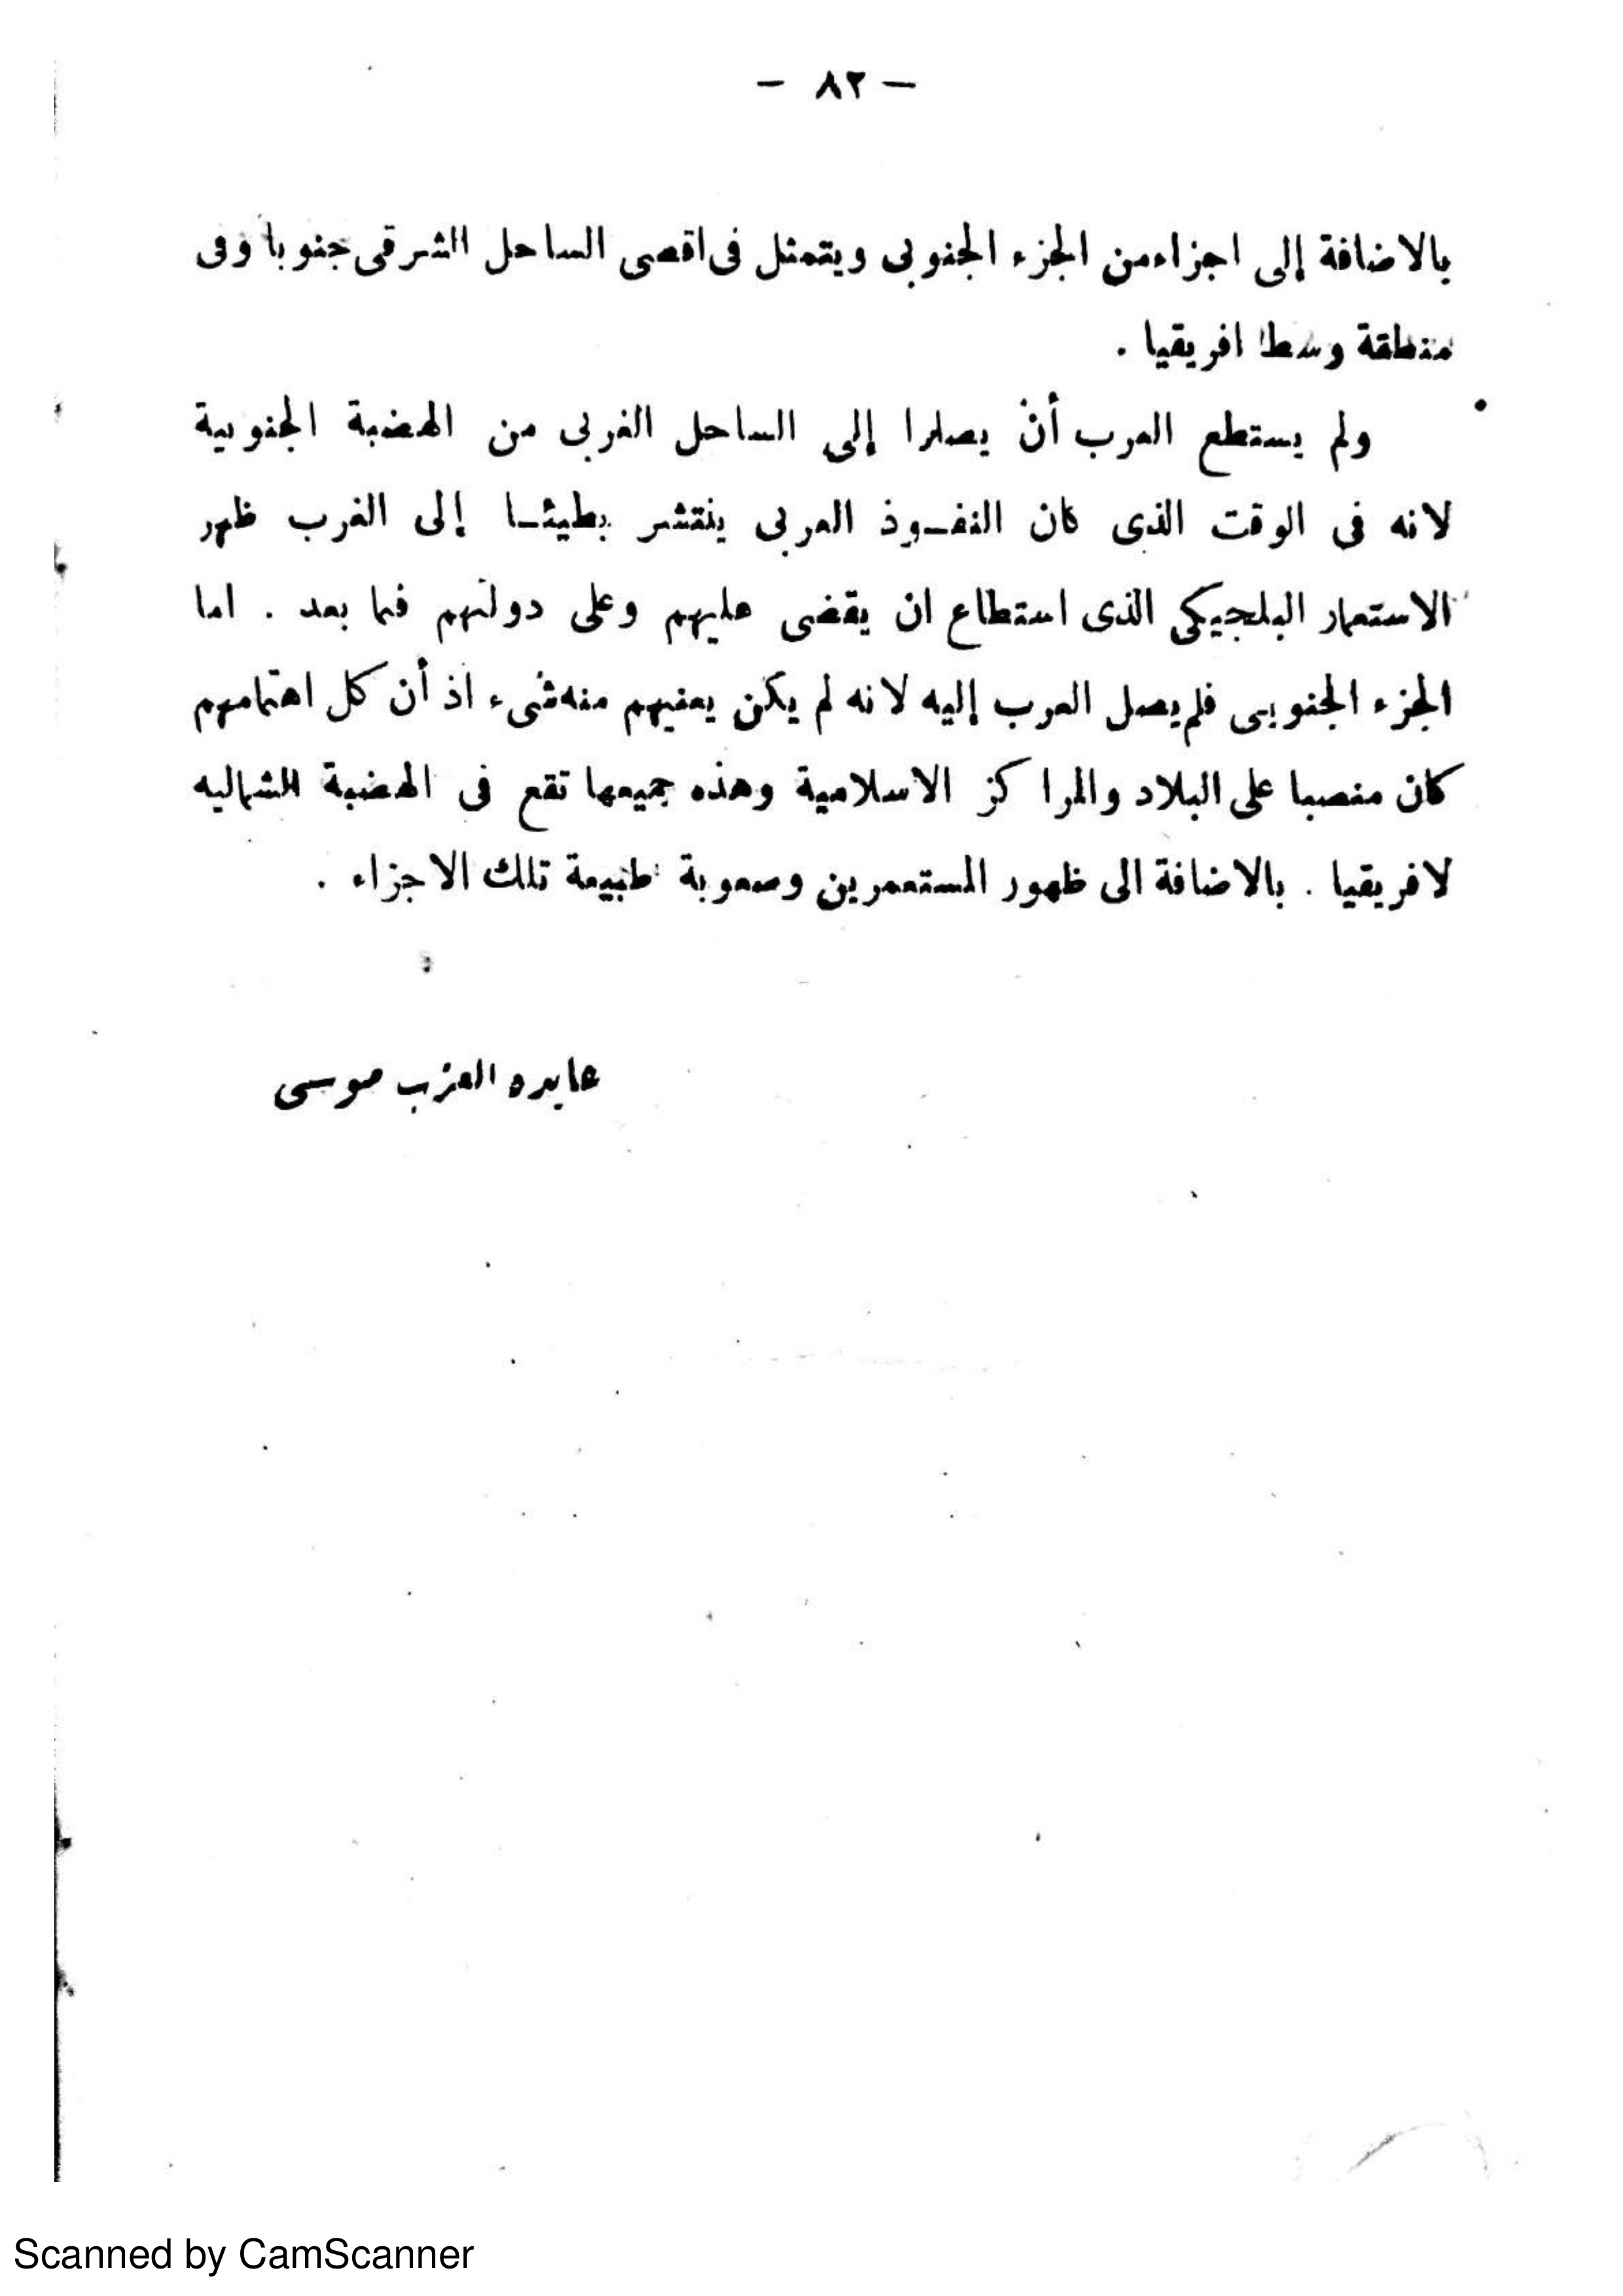 — ٨٢ —
بالاضافة إلى اجزاء من الجزء الجنوبى ويتمثل فى اقصى الساحل الشرقى جنوبا وفى
منطقة وسط افريقيا .
ولم يستطع العرب أن يصلوا إلى الساحل الغربى من الهضبة الجنوبية
لانه فى الوقت الذى كان النفـوذ العربى ينتشر بطيئـا إلى الغرب ظهر
الاستعمار البلجيكى الذى استطاع ان يقضى عليهم وعلى دولتهم فيما بعد . اما
الجزء الجنوبى فلم يصل العرب إليه لانه لم يكن يعنيهم منه شىء اذ أن كل اهتمامهم
كان منصبا على البلاد والمراكز الاسلامية وهذه جميعها تقع فى الهضبة الشماليه
لافريقيا . بالاضافة الى ظهور المستعمرين وصعوبة طبيعة تلك الاجزاء .
عايده العزب موسى
Scanned by CamScanner